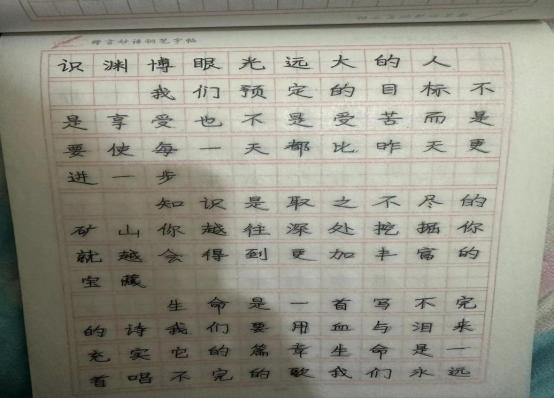 警言妙语钢笔字帖
识渊博眼光远大的人
我们预定的目标不
是享受也不是受苦而是
要使每一天都比昨天更
进一步
知识是取之不尽的
矿山你越往深处挖掘你
就越会得到更加丰富的
宝藏
生命是一首写不完
的诗我们要用血与泪来
充实它的篇章生命是一
首唱不完的歌我们永远